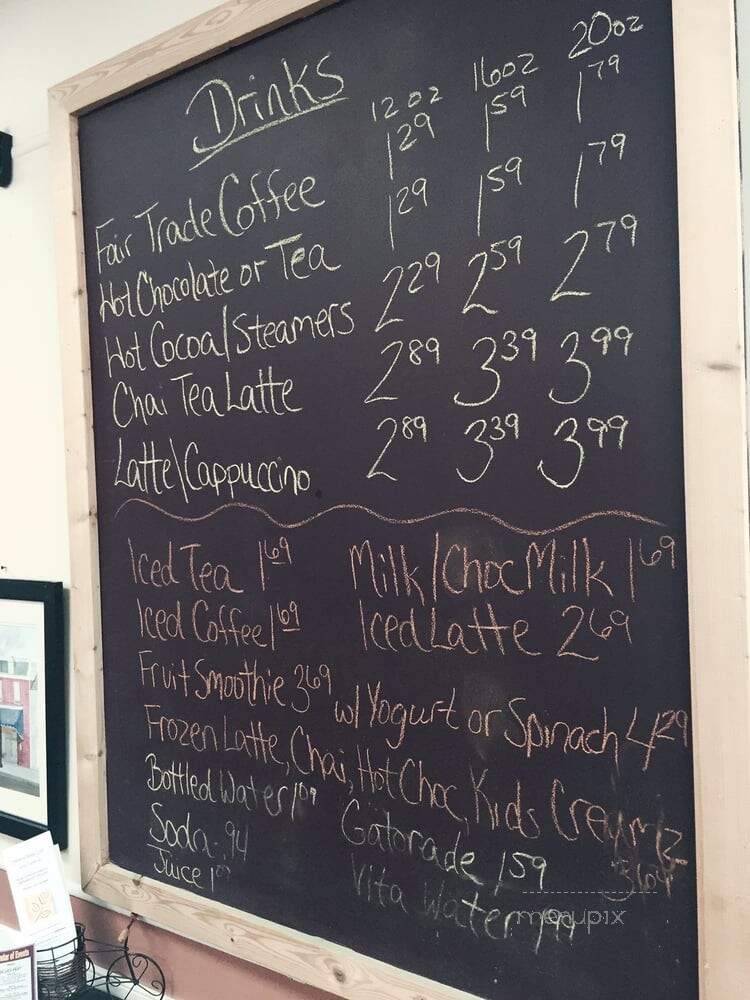 Drinks
12oz 16oz 20oz
Fair Trade Coffee 1 29 1 59 1 79
Hot Chocolate or Tea 1 29 1 59 1 79
Hot Cocoa/Steamers 2 29 2 59 2 79
Chai Tea Latte 2 89 3 39 3 99
Latte\Cappuccino 2 89 3 39 3 99
Iced Tea 1 69 Milk/Choc Milk 1 69
Iced Coffee 1 69 Iced Latte 2 69
Fruit Smoothie 3 69 w/ Yogurt or Spinach 4 29
Frozen Latte, Chai, Hot Choc, Kids Creamz
Bottled Water 1 09 Gatorade 1 59
Soda .94 Vita Water 1 99
Juice
menupix